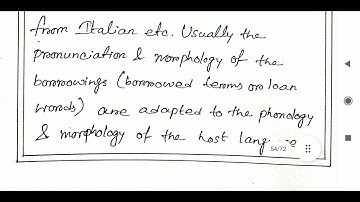 from Italian etc. Usually the
pronunciation & morphology of the
borrowings (borrowed terms or loan
words) are adapted to the phonology
& morphology of the host
54/72